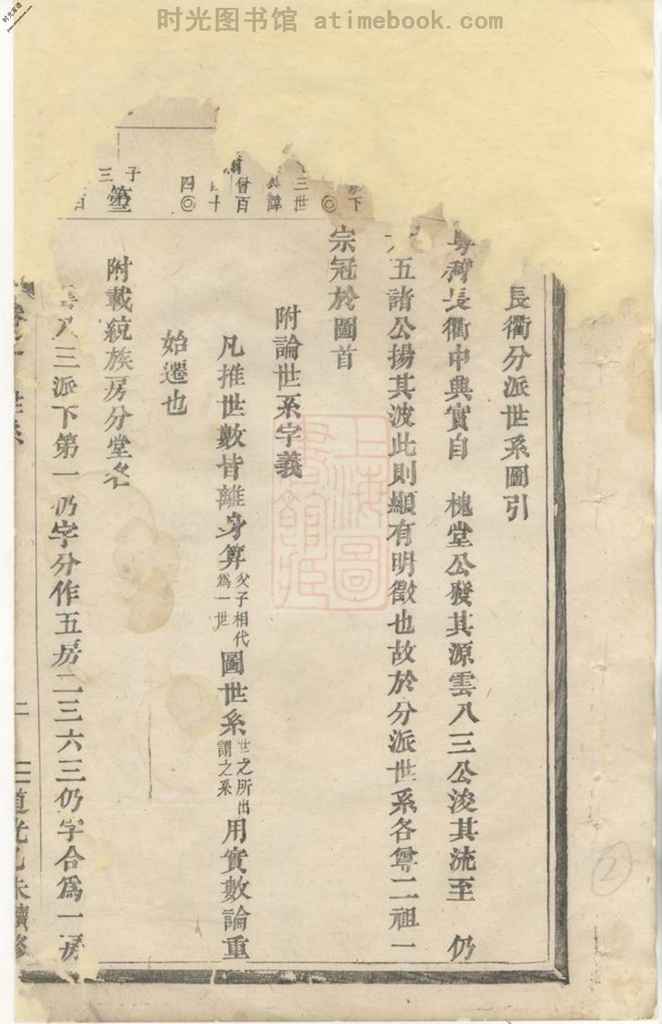 时光图书馆 atimebook.com
長衢分派世系圖引
長衢中興實自 槐堂公發其源雲八三公浚其流至 仍
五諸公揚其波此則顯有明徵也故於分派世系各尊二祖一
宗冠於圖首
附論世系字義
凡推世數皆離身算父子相代為一世圖世系世之所出謂之系用實數論重
始遷也
附載統族房分堂名
八三派下第一仍字分作五房二三六三仍字合為一房
道光乙未續修
上海圖書館藏